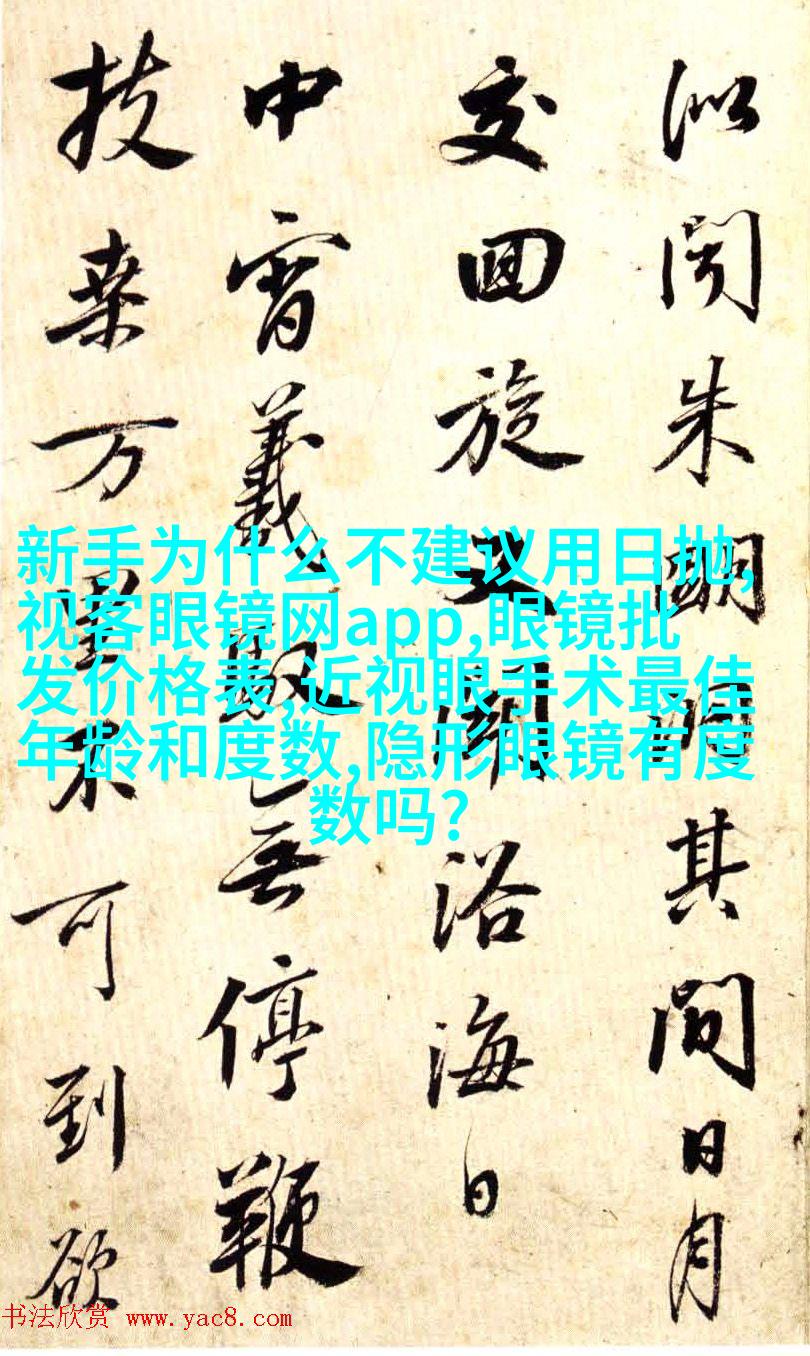 似聞朱明洞其間日月
交回旋又聞浴海日
中宵羲馭無停鞭
扶桒万里不可到欲
新手为什么不建议用日抛,
视客眼镜网app,眼镜批
发价格表,近视眼手术最佳
年龄和度数,隐形眼镜有度
数吗?
书法欣赏 www.yac8.com